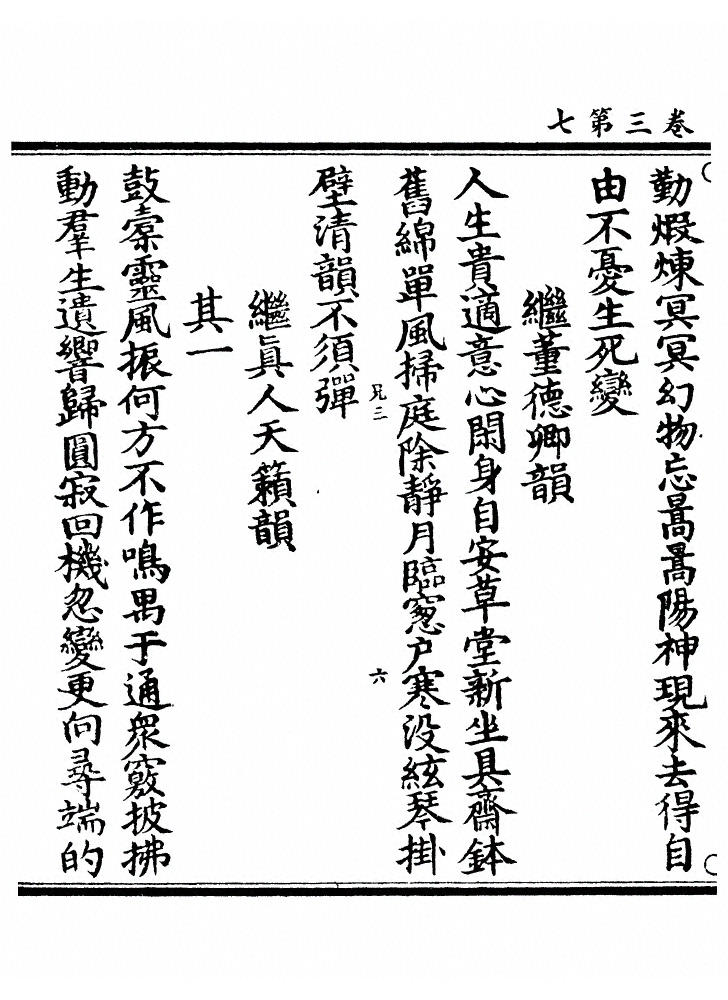 卷三第七
勤煆煉冥冥幻物忘暠暠陽神現來去得自
由不憂生死變
繼董德卿韻
人生貴適意心閑身自安草堂新坐具齋鉢
舊綿單風掃庭除靜月臨窻户寒没絃琴掛
兄三
六
壁清韻不須彈
繼眞人天籟韻
其一
鼓橐靈風振何方不作鳴禺于通衆竅披拂
動羣生遺響歸圓寂回機忽變更向尋端的